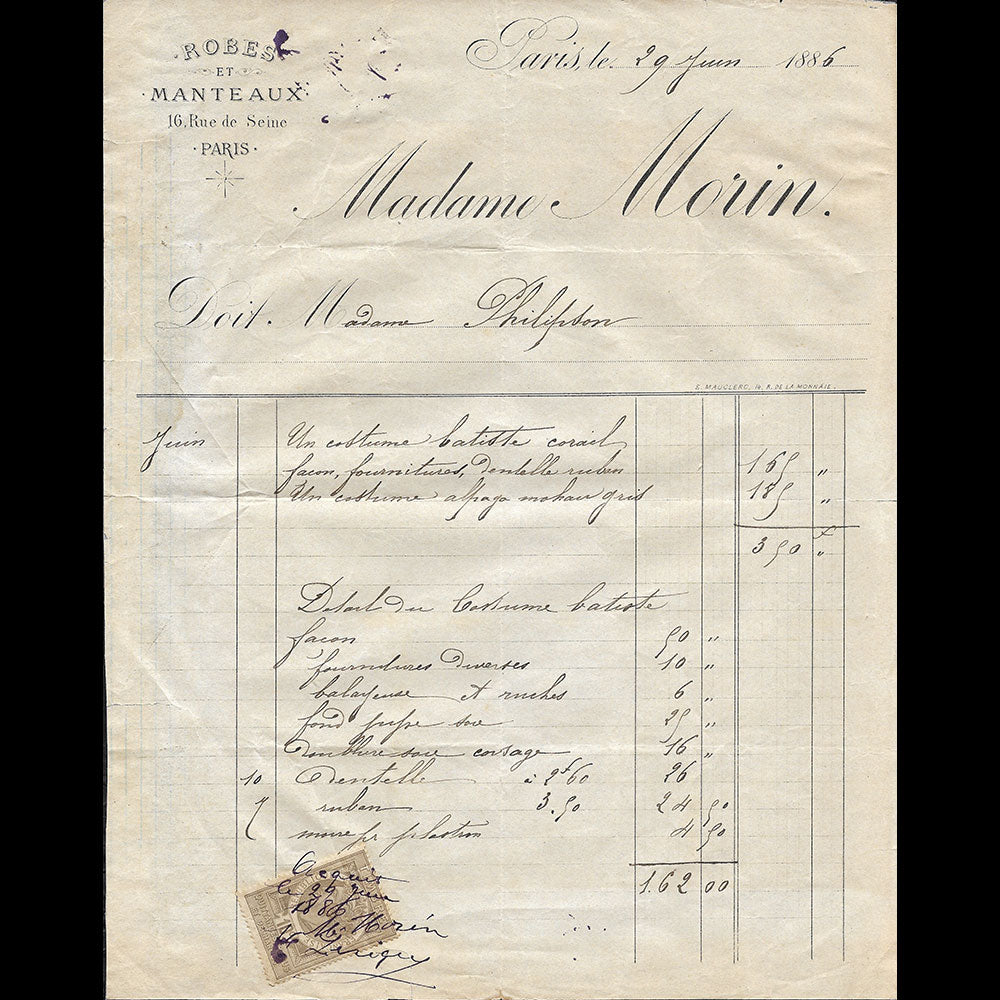 ROBES
ET
MANTEAUX
16, Rue de Seine
PARIS
Paris, le 29 Juin 1886
Madame Morin.
Doit Madame Philipson
S. MAUCLERC, 14, R. DE LA MONNAIE.
Juin Un costume batiste corail
façon, fournitures, Dentelle ruban 165 "
Un costume alpaga mohair gris 185 "
350 f "
Détail du Costume batiste
façon 50 "
fournitures Diverses 10 "
balayeuse et ruches 6 "
fond jupe soie 25 "
Doublure soie corsage 16 "
10 Dentelle à 2f60 26
7 ruban 3.50 24 50
moire pr plastron 4 50
162 00
Acquit
le 29 Juin
1886
Morin